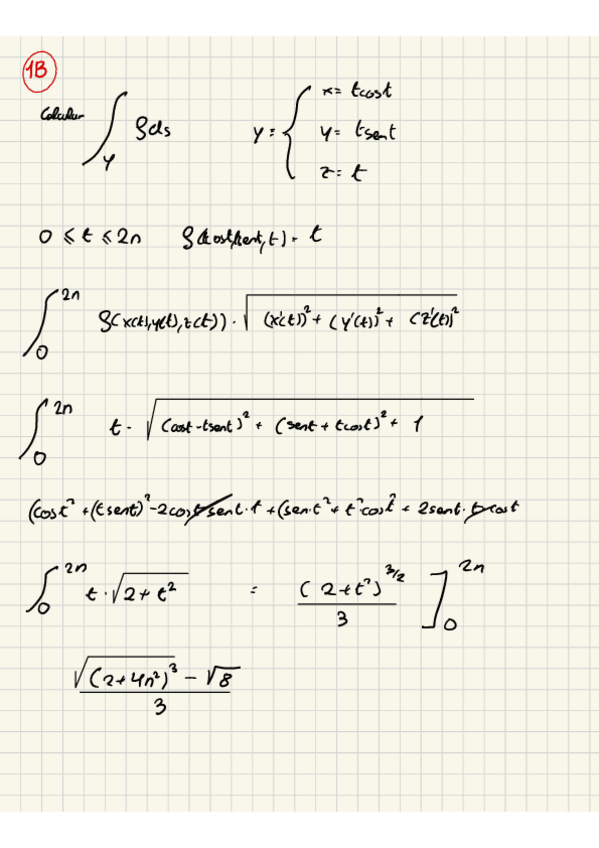 1B
Calcular ∫_γ ρ ds    γ = { x = t cos t
y = t sen t
z = t
0 ≤ t ≤ 2π    ρ(t cos t, t sen t, t) = t
∫_0^{2π} ρ(x(t), y(t), z(t)) · √((x'(t))² + (y'(t))² + (z'(t))²
∫_0^{2π} t · √((cos t - t sen t)² + (sen t + t cos t)² + 1
(cos t² + (t sen t)² - 2 cos t · sen t · t + (sen t² + t² cos t² + 2 sen t · t · cos t
∫_0^{2π} t · √(2 + t²) = (2 + t²)^{3/2} / 3 ]_0^{2π}
(√((2 + 4π²)³) - √8) / 3